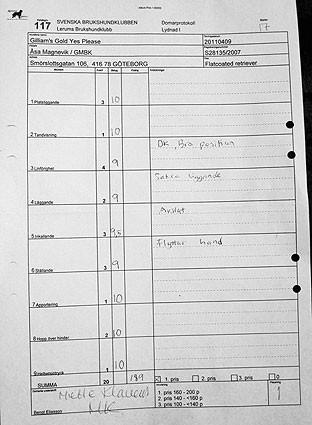 117
SVENSKA BRUKSHUNDKLUBBEN
Lerums Brukshundklubb
Domarprotokoll
Lydnad I
17
Gilliam's Gold Yes Please
20110409
Åsa Magnevik / GMBK
S28135/2007
Smörslottsgatan 106, 416 78 GÖTEBORG
Flatcoated retriever
Moment
Koeff
Betyg
Poäng
Anteckningar
1 Platsliggande 3 10
2 Tandvisning 1 10
DK, Bra position
3 Linförighet 4 9
4 Läggande 2 9
5 Inkallande 3 9,5
6 Ställande 3 9
7 Apportering 1 10
8 Hopp över hinder 2 10
1 10
SUMMA 20 189
1. pris 2. pris 3. pris 0
1. pris 160 - 200 p
2. pris 140 - <160 p
3. pris 100 - <140 p
Placering
1
Bengt Eliasson